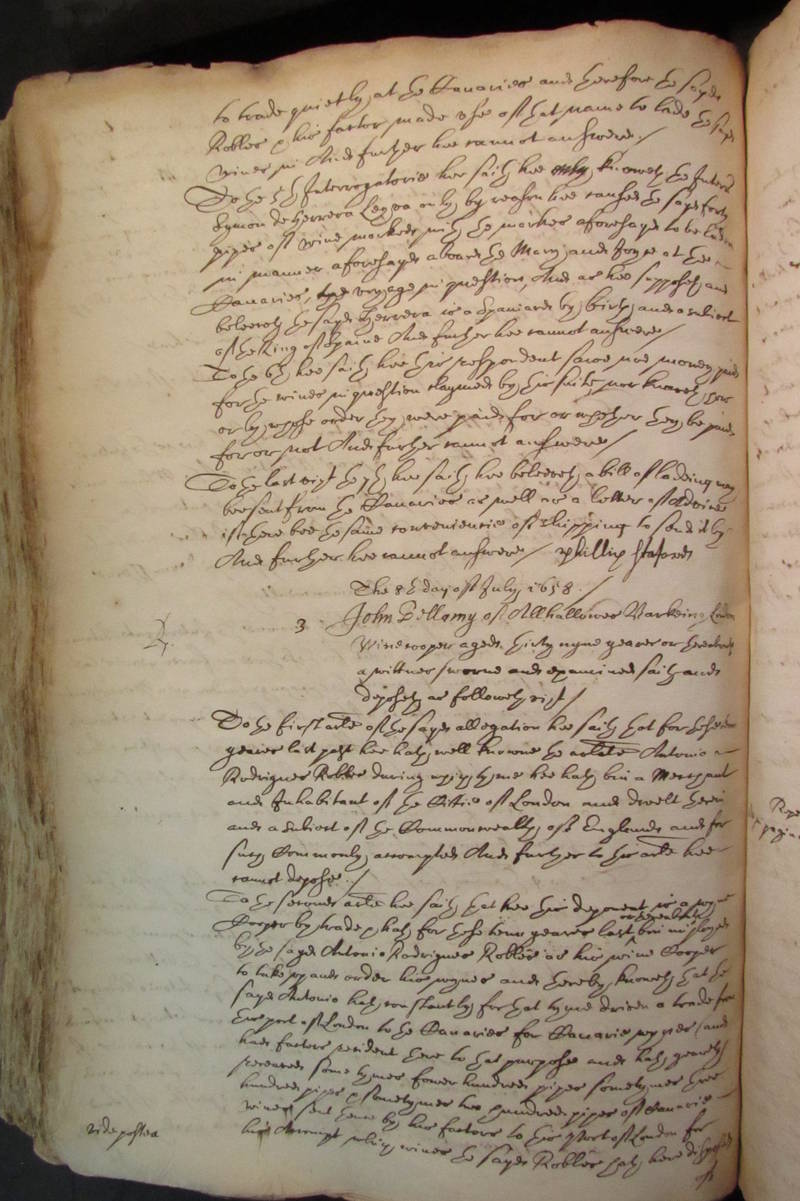 to trade quietly at the Canaries and therefore the sayd
Robles his factor made use of that name to lade the sayd
wines in And further hee cannot answere./
To the 5th Interrogatorie hee saith hee only knoweth the Interrate
Symon de Herrera Leyva only by reason hee caused the sayd forty
pipes of wine marked with the markes aforesayd to be laden
in manner aforesayd aboard the Mary and Joyce at the
Canaries, the voyage in question, And as hee supposeth and
beleeveth the sayd Herrera is a Spaniard by birth and a subiect
of the King of Spaine And further hee cannot answere/
To the 6th hee saith hee this respondent saw noe money paid
for the wines in question claymed by this suite, nor knoweth how
or by whose order they were paid for or whether they be paid
for or not And further cannot answere/
To the last vizt the 7th hee saith hee beleeveth a bill of lading may
bee sent from the Canaries as well as a letter of Advice
if there bee the same conveniencie of shipping to send it by
And further hee cannot answere/ Phillip Stafford
The 8th day of July 1658./
3 John Bellamy of Allhallowes Barkeing London
Winecooper aged thirty nyne yeares or thereabouts
a wittnes sworne and examined saith and
deposeth as followeth vizt/
To the first arte of the sayd allegation hee saith that for these
yeares last past hee hath well knowne the arlate Antonio
Rodrigues Robles during which tyme hee hath bin a Merchant
and Inhabitant of the Cittie of London and dwelt therein
and a subiect of the Commonwealth of England and for
such Commonly accompted And further to this arte hee
cannot depose./
To the second arte hee saith that hee this deponent is a wyne
Cooper by trade & hath for these tenn yeares last or thereabouts bin imployed
by the sayd Antonio Rodrigues Robles as his wine Cooper
to take up and order his wynes and thereby knoweth that the
sayd Antonio hath constantly for that tyme driven a trade from
this port of London to the Canaries for Canarie wynes (and
had factors resident there to that purpose and hath yearely
received some tymes fower hundred pipes sometymes three
hundred pipes & sometymes two hundred pipes of Canarie
wines sent thence by his factors to this Port of London for
his Accompt which wines the sayd Robles hath here disposed
of
vide postea